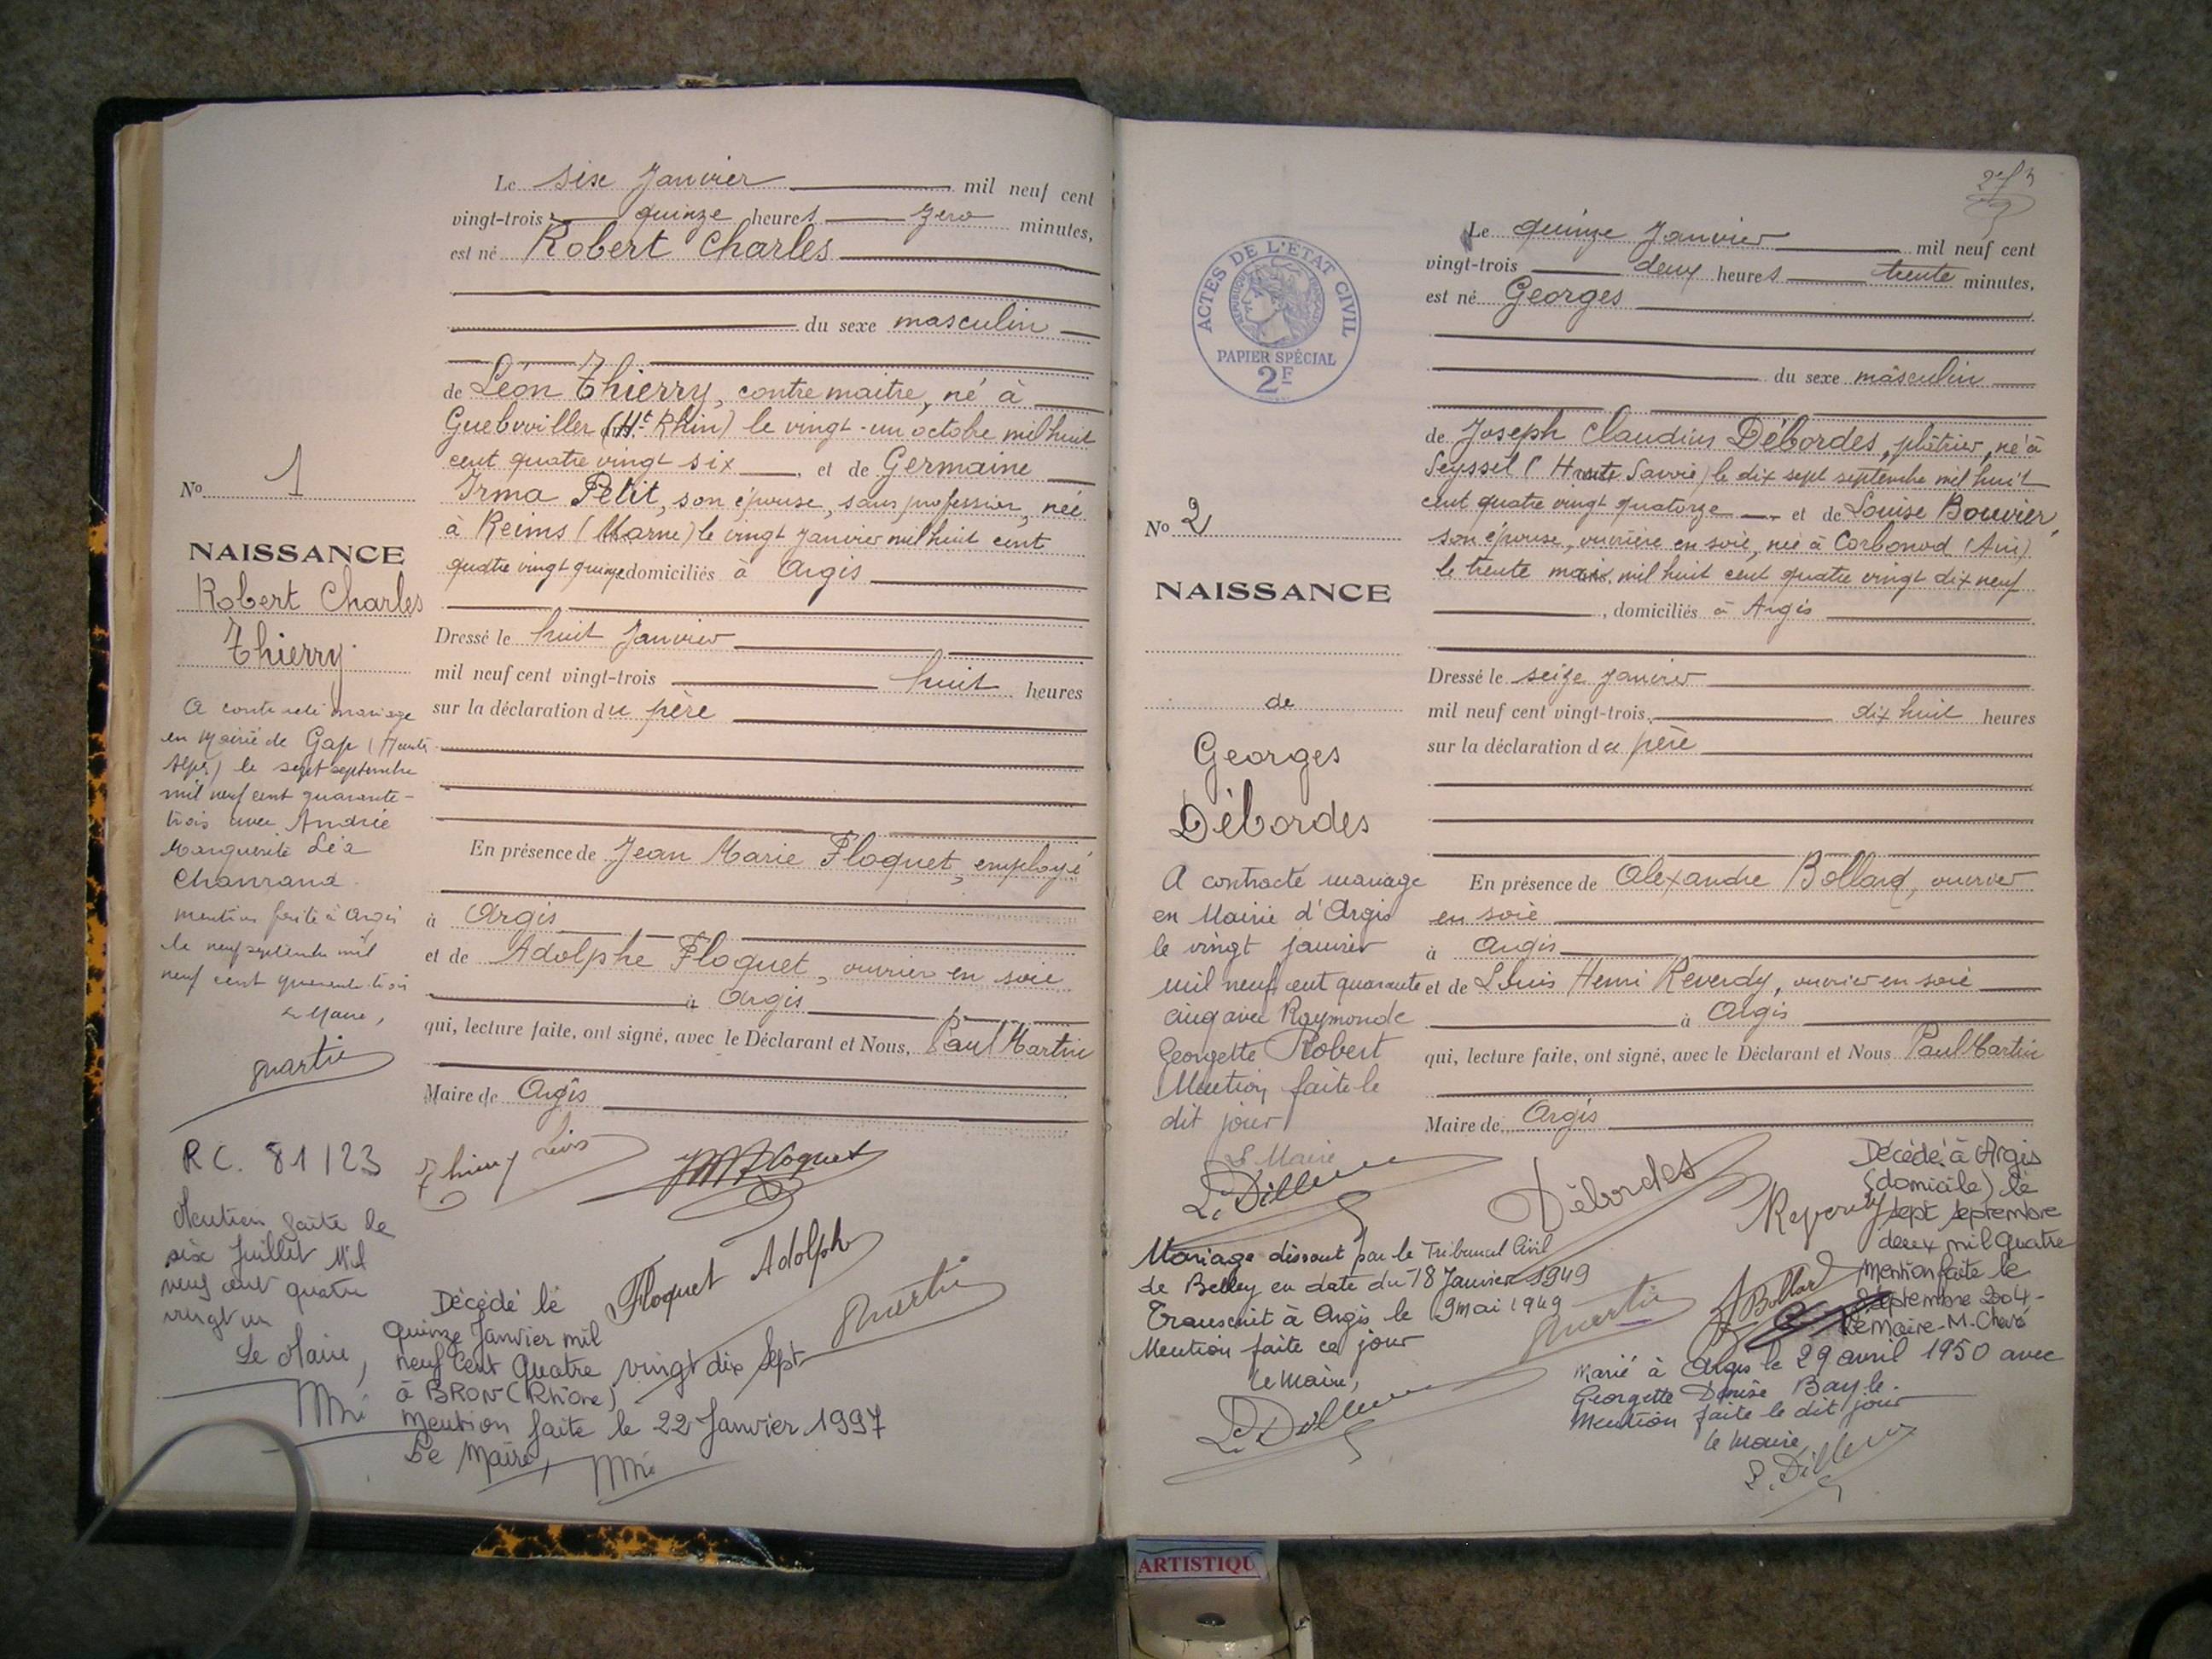 Le six Janvier mil neuf cent
vingt-trois quinze heures zero minutes,
est né Robert Charles
du sexe masculin
de Léon Thierry, contre maitre, né à
Guebwiller (Ht Rhin) le vingt-un octobre mil huit
cent quatre vingt six et de Germaine
Irma Petit, son épouse, sans profession, née
à Reims (Marne) le vingt Janvier mil huit cent
quatre vingt quinze domiciliés à Argis
Dressé le huit Janvier
mil neuf cent vingt-trois huit heures
sur la déclaration du père
En présence de Jean Marie Floquet, employé
à Argis
et de Adolphe Floquet, ouvrier en soie
à Argis
qui, lecture faite, ont signé, avec le Déclarant et Nous, Paul Martin
Maire de Argis
No 1
NAISSANCE
Robert Charles
Thierry
A contracté mariage
en Mairie de Gap (Hautes
Alpes) le sept septembre
mil neuf cent quarante-
trois avec Andrée
Marguerite Léa
mention faite à Argis
le neuf septembre mil
neuf cent quarante trois
Le Maire,
Martin
RC. 81/23
Mention faite le
six Juillet Mil
neuf cent quatre
vingt un
Le Maire,
Thierry Léon
JM Floquet
Floquet Adolphe
Martin
Décédé le
Quinze Janvier mil
neuf Cent Quatre vingt dix Sept
à BRON (Rhône)
Mention faite le 22 Janvier 1997
Le Maire,
ACTES DE L'ÉTAT CIVIL
RÉPUBLIQUE FRANÇAISE
PAPIER SPÉCIAL
2F
Le quinze Janvier mil neuf cent
vingt-trois deux heures trente minutes,
est né Georges
du sexe masculin
de Joseph Claudius Débordes, plâtrier, né à
Seyssel (Haute Savoie) le dix sept septembre mil huit
cent quatre vingt quatorze et de Louise Bouvier,
son épouse, ouvrière en soie, née à Corbonod (Ain)
le trente mars mil huit cent quatre vingt dix neuf
, domiciliés à Argis
Dressé le seize Janvier
mil neuf cent vingt-trois, dix huit heures
sur la déclaration du père
En présence de Alexandre Bollard, ouvrier
en soie
à Argis
et de Louis Henri Reverdy, ouvrier en soie
à Argis
qui, lecture faite, ont signé, avec le Déclarant et Nous Paul Martin
Maire de Argis
No 2
NAISSANCE
de
Georges
Débordes
A contracté mariage
en Mairie d'Argis
le vingt janvier
mil neuf cent quarante
cinq avec Raymonde
Georgette Robert
Mention faite le
dit jour
Le Maire
L. Dilleu
Mariage dissout par le Tribunal Civil
de Belley en date du 18 Janvier 1949
Transcrit à Argis le 9 mai 1949
Mention faite ce jour
Le Maire,
Débordes
Reverdy
Bollard
Martin
Décédé à Argis
(domicile) le
sept septembre
deux mil quatre
Mention faite le
septembre 2004-
Le Maire-M.
Marié à Argis le 29 avril 1950 avec
Georgette Denise Bayle.
Mention faite le dit jour
Le Maire
ARTISTIQU